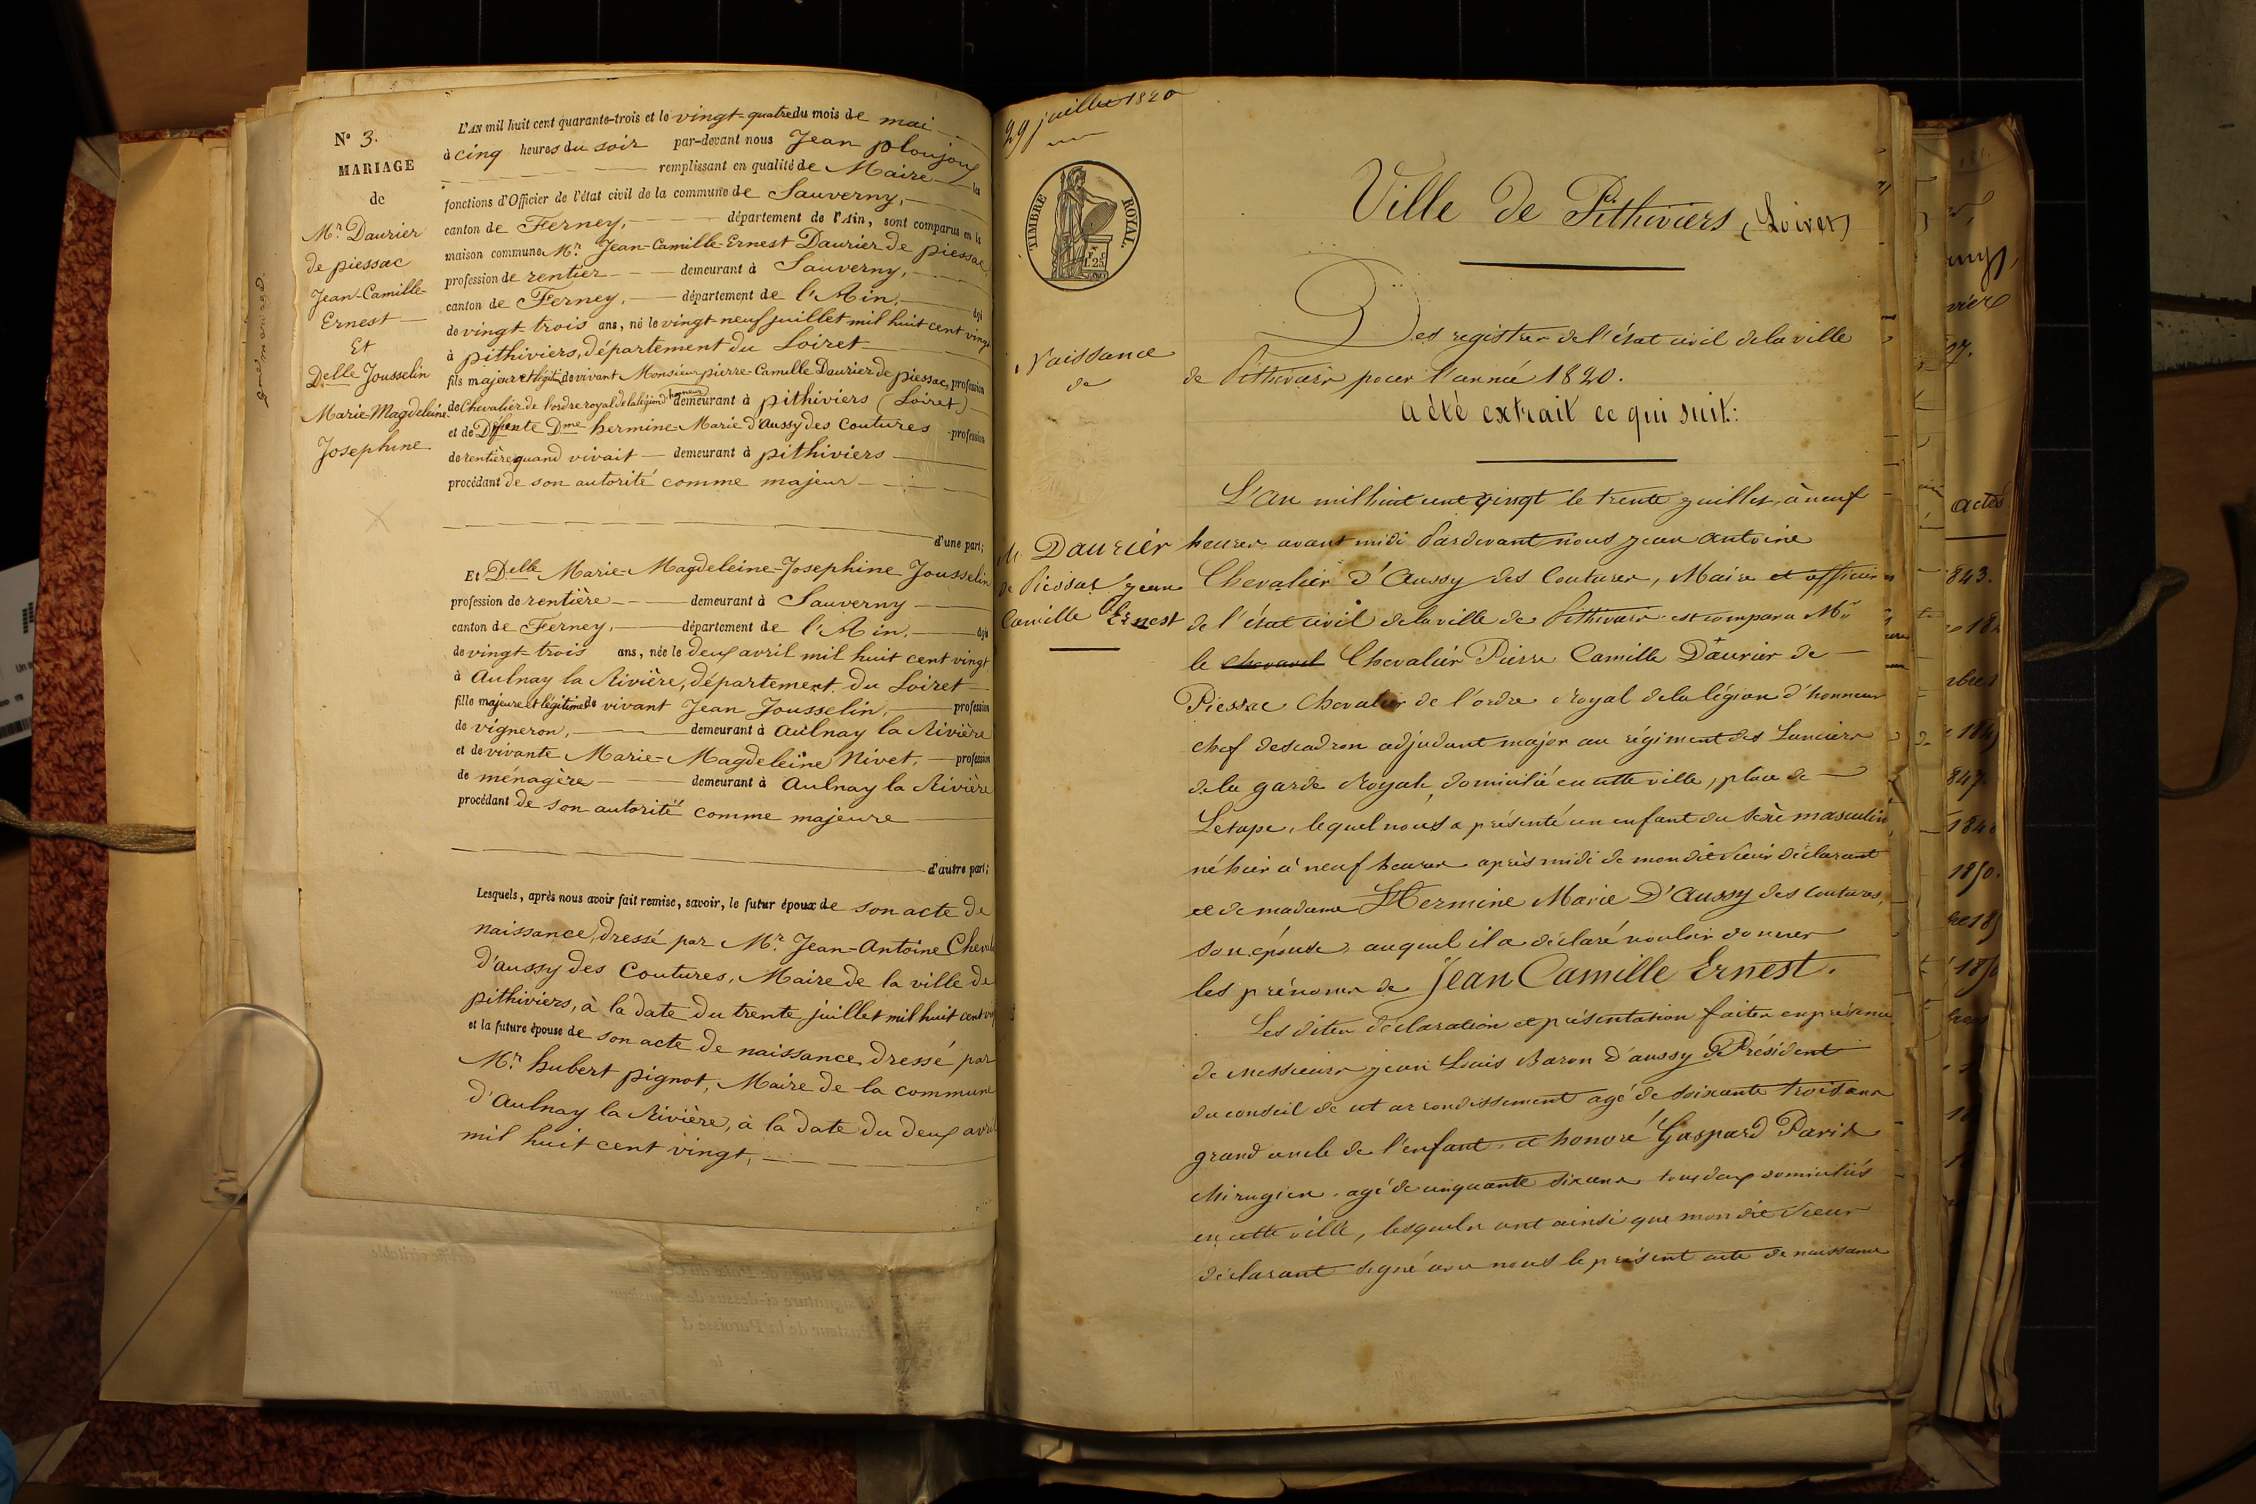 N° 3.
MARIAGE
de
Mr. Daurier
de piessac
Jean-Camille-
Ernest
Et
Delle Jousselin
Marie-Magdeleine-
Josephine
L'AN mil huit cent quarante-trois et le vingt-quatre du mois de mai
à cinq heures du soir par-devant nous Jean ploujoux
remplissant en qualité de Maire les
fonctions d'Officier de l'état civil de la commune de Sauverny,
canton de Ferney, département de l'Ain, sont comparus en la
maison commune Mr. Jean-Camille-Ernest Daurier de piessac,
profession de rentier demeurant à Sauverny,
canton de Ferney. département de l'Ain, âgé
de vingt-trois ans, né le vingt-neuf juillet mil huit cent vingt
à pithiviers, département du Loiret
fils majeur et légit. de vivant Monsieur pierre-Camille Daurier de piessac, profession
de Chevalier de l'ordre royal de la légion d'honneur demeurant à pithiviers (Loiret)
et de Défunte Dme hermine-Marie d'Aussy des coutures profession
de rentière quand vivait demeurant à pithiviers
procédant de son autorité comme majeur
d'une part;
Et Delle Marie-Magdeleine-Josephine Jousselin
profession de rentière demeurant à Sauverny
canton de Ferney, département de l'Ain, âgée
de vingt-trois ans, née le deux avril mil huit cent vingt
à Aulnay la Rivière, département du Loiret
fille majeure et légitime de vivant Jean Jousselin, profession
de vigneron, demeurant à Aulnay la Rivière
et de vivante Marie-Magdeleine Nivet, profession
de ménagère demeurant à Aulnay la Rivière
procédant de son autorité comme majeure
d'autre part;
Lesquels, après nous avoir fait remise, savoir, le futur époux de son acte de
naissance, dressé par Mr. Jean-Antoine Cheval
d'aussy des Coutures, Maire de la ville de
pithiviers, à la date du trente juillet mil huit cent vin
et la future épouse de son acte de naissance dressé par
Mr. hubert pignot, Maire de la commune
d'Aulnay la Rivière, à la date du deux avril
mil huit cent vingt,
29 juillet 1820
TIMBRE ROYAL.
Ville de Pithiviers (Loiret)
Des registres de l'état civil de la ville
de Pithiviers pour l'année 1820.
a été extrait ce qui suit:
Naissance
de
Mr Daurier
de Piessac Jean
Camille Ernest
L'an mil huit cent vingt le trente juillet, à neuf
heures avant midi Pardevant nous jean antoine
Chevalier d'Aussy des Coutures, Maire et officier
de l'état civil de la ville de Pithiviers est comparu Mr
le Chevalier Pierre Camille Daurier de
Piessac Chevalier de l'ordre Royal de la légion d'honneur
chef descadron adjudant major au régiment des Lanciers
de la garde Royale, domicilié en cette ville, place de
Létape, lequel nous a présenté un enfant du sexe masculin
né hier à neuf heures après midi de mon dit sieur déclarant
et de madame Hermine Marie D'Aussy des coutures,
son épouse, auquel il a déclaré vouloir donner
les prénoms de Jean Camille Ernest.
Les dites déclaration et présentation faites en présence
de messieurs jean Louis Baron d'aussy Président
du conseil de cet arrondissement agé de soixante trois ans
grand oncle de l'enfant, et honoré Gaspard Paris
chirugien, agé de cinquante six ans tous deux domiciliés
en cette ville, lesquels ont ainsi que mon dit sieur
déclarant signé avec nous le présent acte de naissance
actes